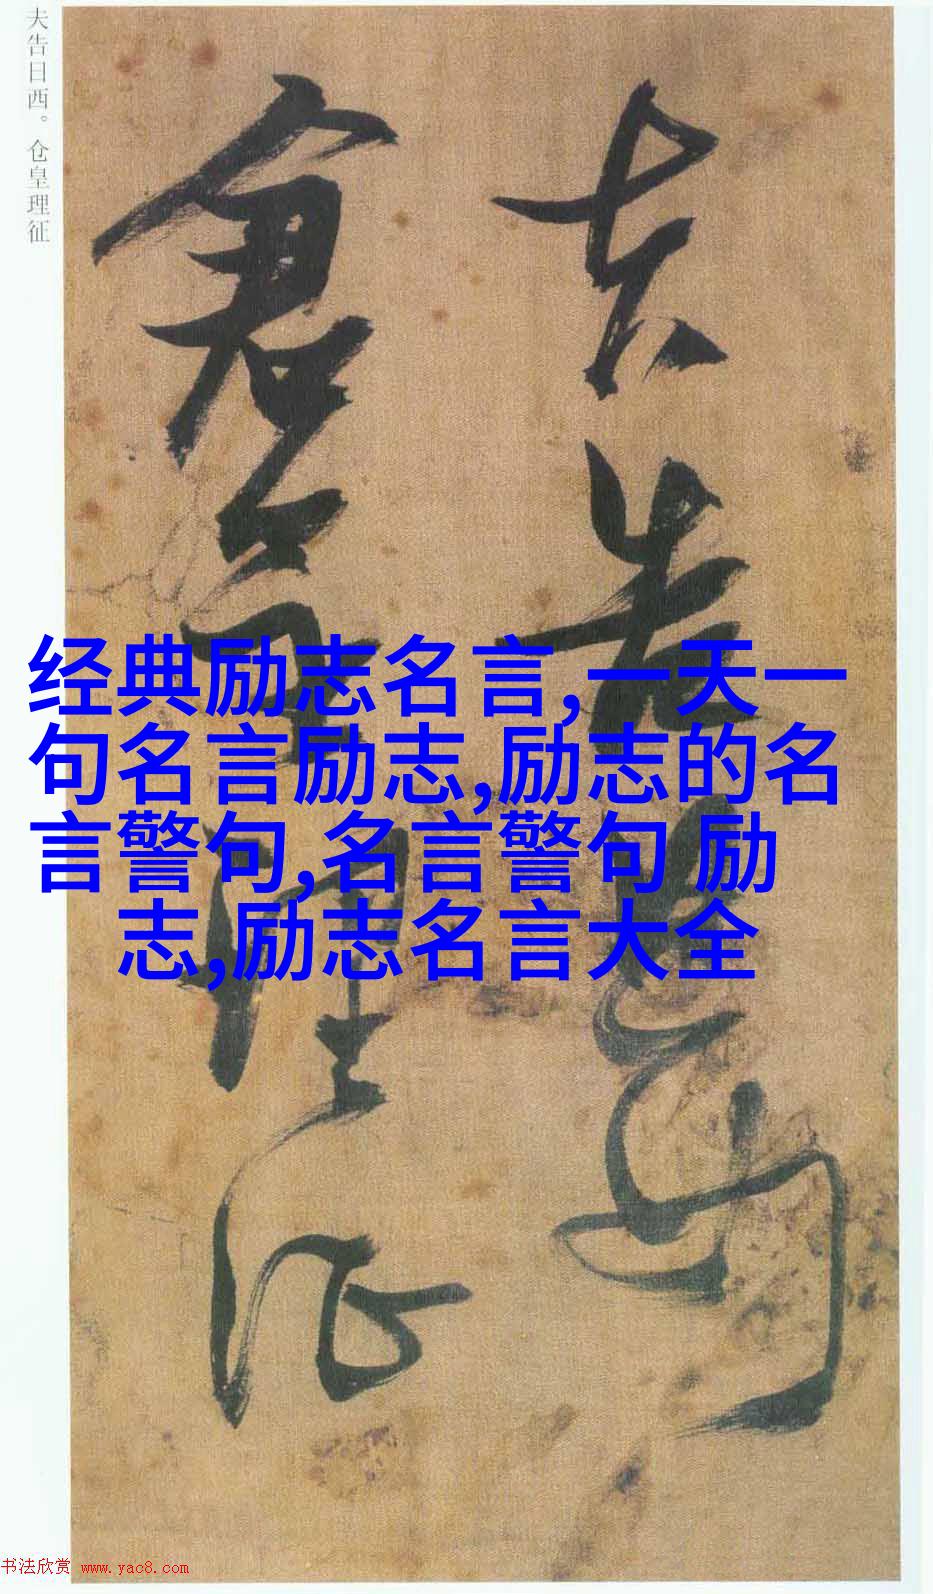 夫告日西。仓皇理征
夫告日西
倉皇理征
经典励志名言,一天一
句名言励志,励志的名
言警句,名言警句 励
志,励志名言大全
书法欣赏 www.yac8.com